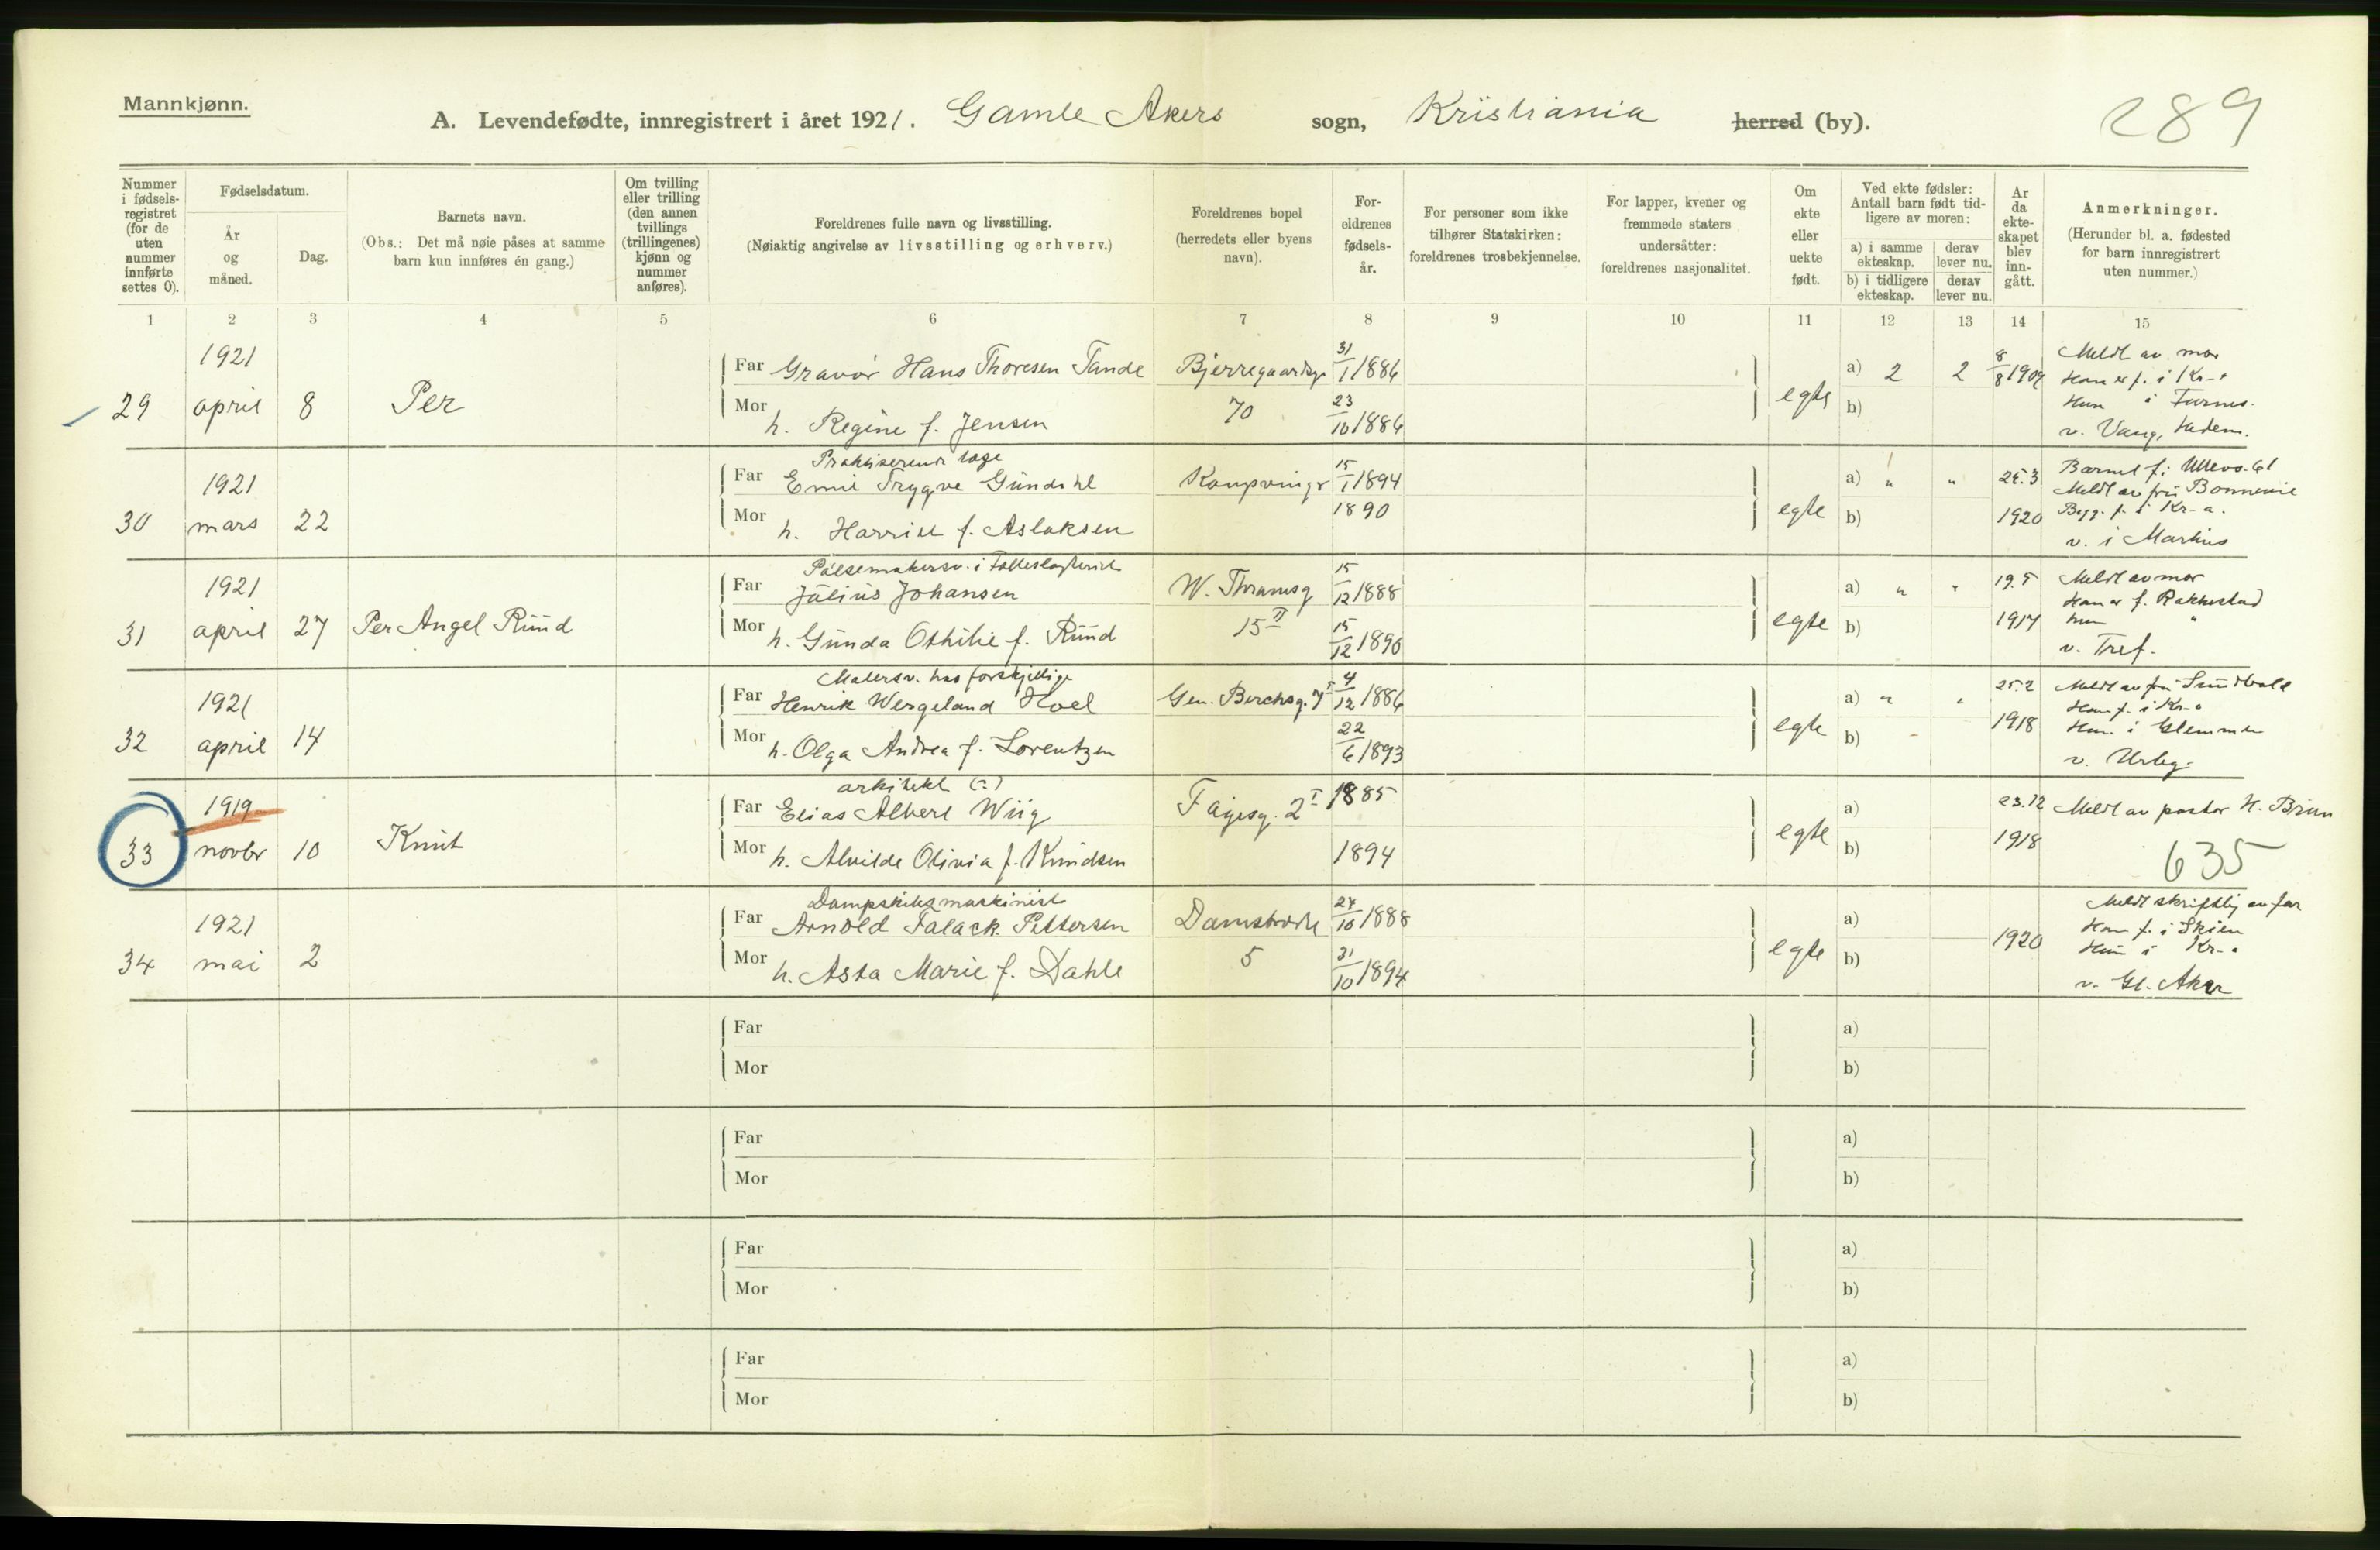 Mannkjønn.
A. Levendefødte, innregistrert i året 1921. Gamle Akers sogn, Kristiania herred (by).
289
Nummer i fødsels-registret (for de uten nummer innførte settes 0).
Fødselsdatum.
År og måned.
Dag.
Barnets navn.
(Obs.: Det må nøie påses at samme barn kun innføres én gang.)
Om tvilling eller trilling (den annen tvillings (trillingenes) kjønn og nummer anføres).
Foreldrenes fulle navn og livsstilling.
(Nøiaktig angivelse av livsstilling og erhverv.)
Foreldrenes bopel (herredets eller byens navn).
For-eldrenes fødsels-år.
For personer som ikke tilhører Statskirken: foreldrenes trosbekjennelse.
For lapper, kvener og fremmede staters undersåtter: foreldrenes nasjonalitet.
Om ekte eller uekte født.
Ved ekte fødsler: Antall barn født tid-ligere av moren:
a) i samme ekteskap.
derav lever nu.
b) i tidligere ekteskap.
derav lever nu.
Ar da ekte-skapet blev inn-gått.
Anmerkninger.
(Herunder bl. a. fødested for barn innregistrert uten nummer.)
1 2 3 4 5 6 7 8 9 10 11 12 13 14 15
29 1921 april 8 Per
Far Gravør Hans Thoresen Tande
Mor h. Regine f. Jensen
Bjerregaardsg. 70
31/1 1886
23/10 1886
egte
a) 2 2
b)
8/8 1909
Meldt av mor
Han er f. i Kr-a
Hun i Furnes.
v. Vang, Hedem.
30 1921 mars 22
Praktiserende læge
Far Emil Trygve Gundahl
Mor h. Harriet f. Aslaksen
Kongsvinger
15/1 1894
1890
egte
a) " "
b)
25.3 1920
Barnet f. i Ullevo.
Meldt av fru Bonnevie
Begge f. i Kr-a.
v. i Markus
31 1921 april 27 Per Angel Ruud
Pølsemakersv. i Fællesslagteriet
Far Julius Johansen
Mor h. Gunda Othilie f. Ruud
W. Thranesg 15 II
15/12 1888
15/12 1890
egte
a) " "
b)
19.5 1917
Meldt av mor
Han er f. Rakkestad
Hun "
v. Tref.
32 1921 april 14
Malersv. hos forskjellige
Far Henrik Wergeland Hoel
Mor h. Olga Andrea f. Lorentzen
Gen. Berchsg. 7 I
4/12 1886
22/6 1893
egte
a) " "
b)
25.2 1918
Meldt av fru
Han f. i Kr-a
Hun i Glemmen
v. Urbg.
33 1919 novbr 10 Knut
arkitekt (?)
Far Elias Albert Wiig
Mor h. Alvilde Olivia f. Knudsen
Fayesg. 2 I
1885
1894
egte
a)
b)
23.12 1918
Meldt av pastor H. Brun
635
34 1921 mai 2
Dampskibsmaskinist
Far Arnold Falack Pettersen
Mor h. Asta Marie f. Dahle
Damstrædet 5
24/10 1888
31/10 1894
egte
a)
b)
1920
Meldt skriftlig av far
Han f. i Skien
Hun i Kr-a
v. Gl. Aker
Far
Mor
a)
b)
Far
Mor
a)
b)
Far
Mor
a)
b)
Far
Mor
a)
b)